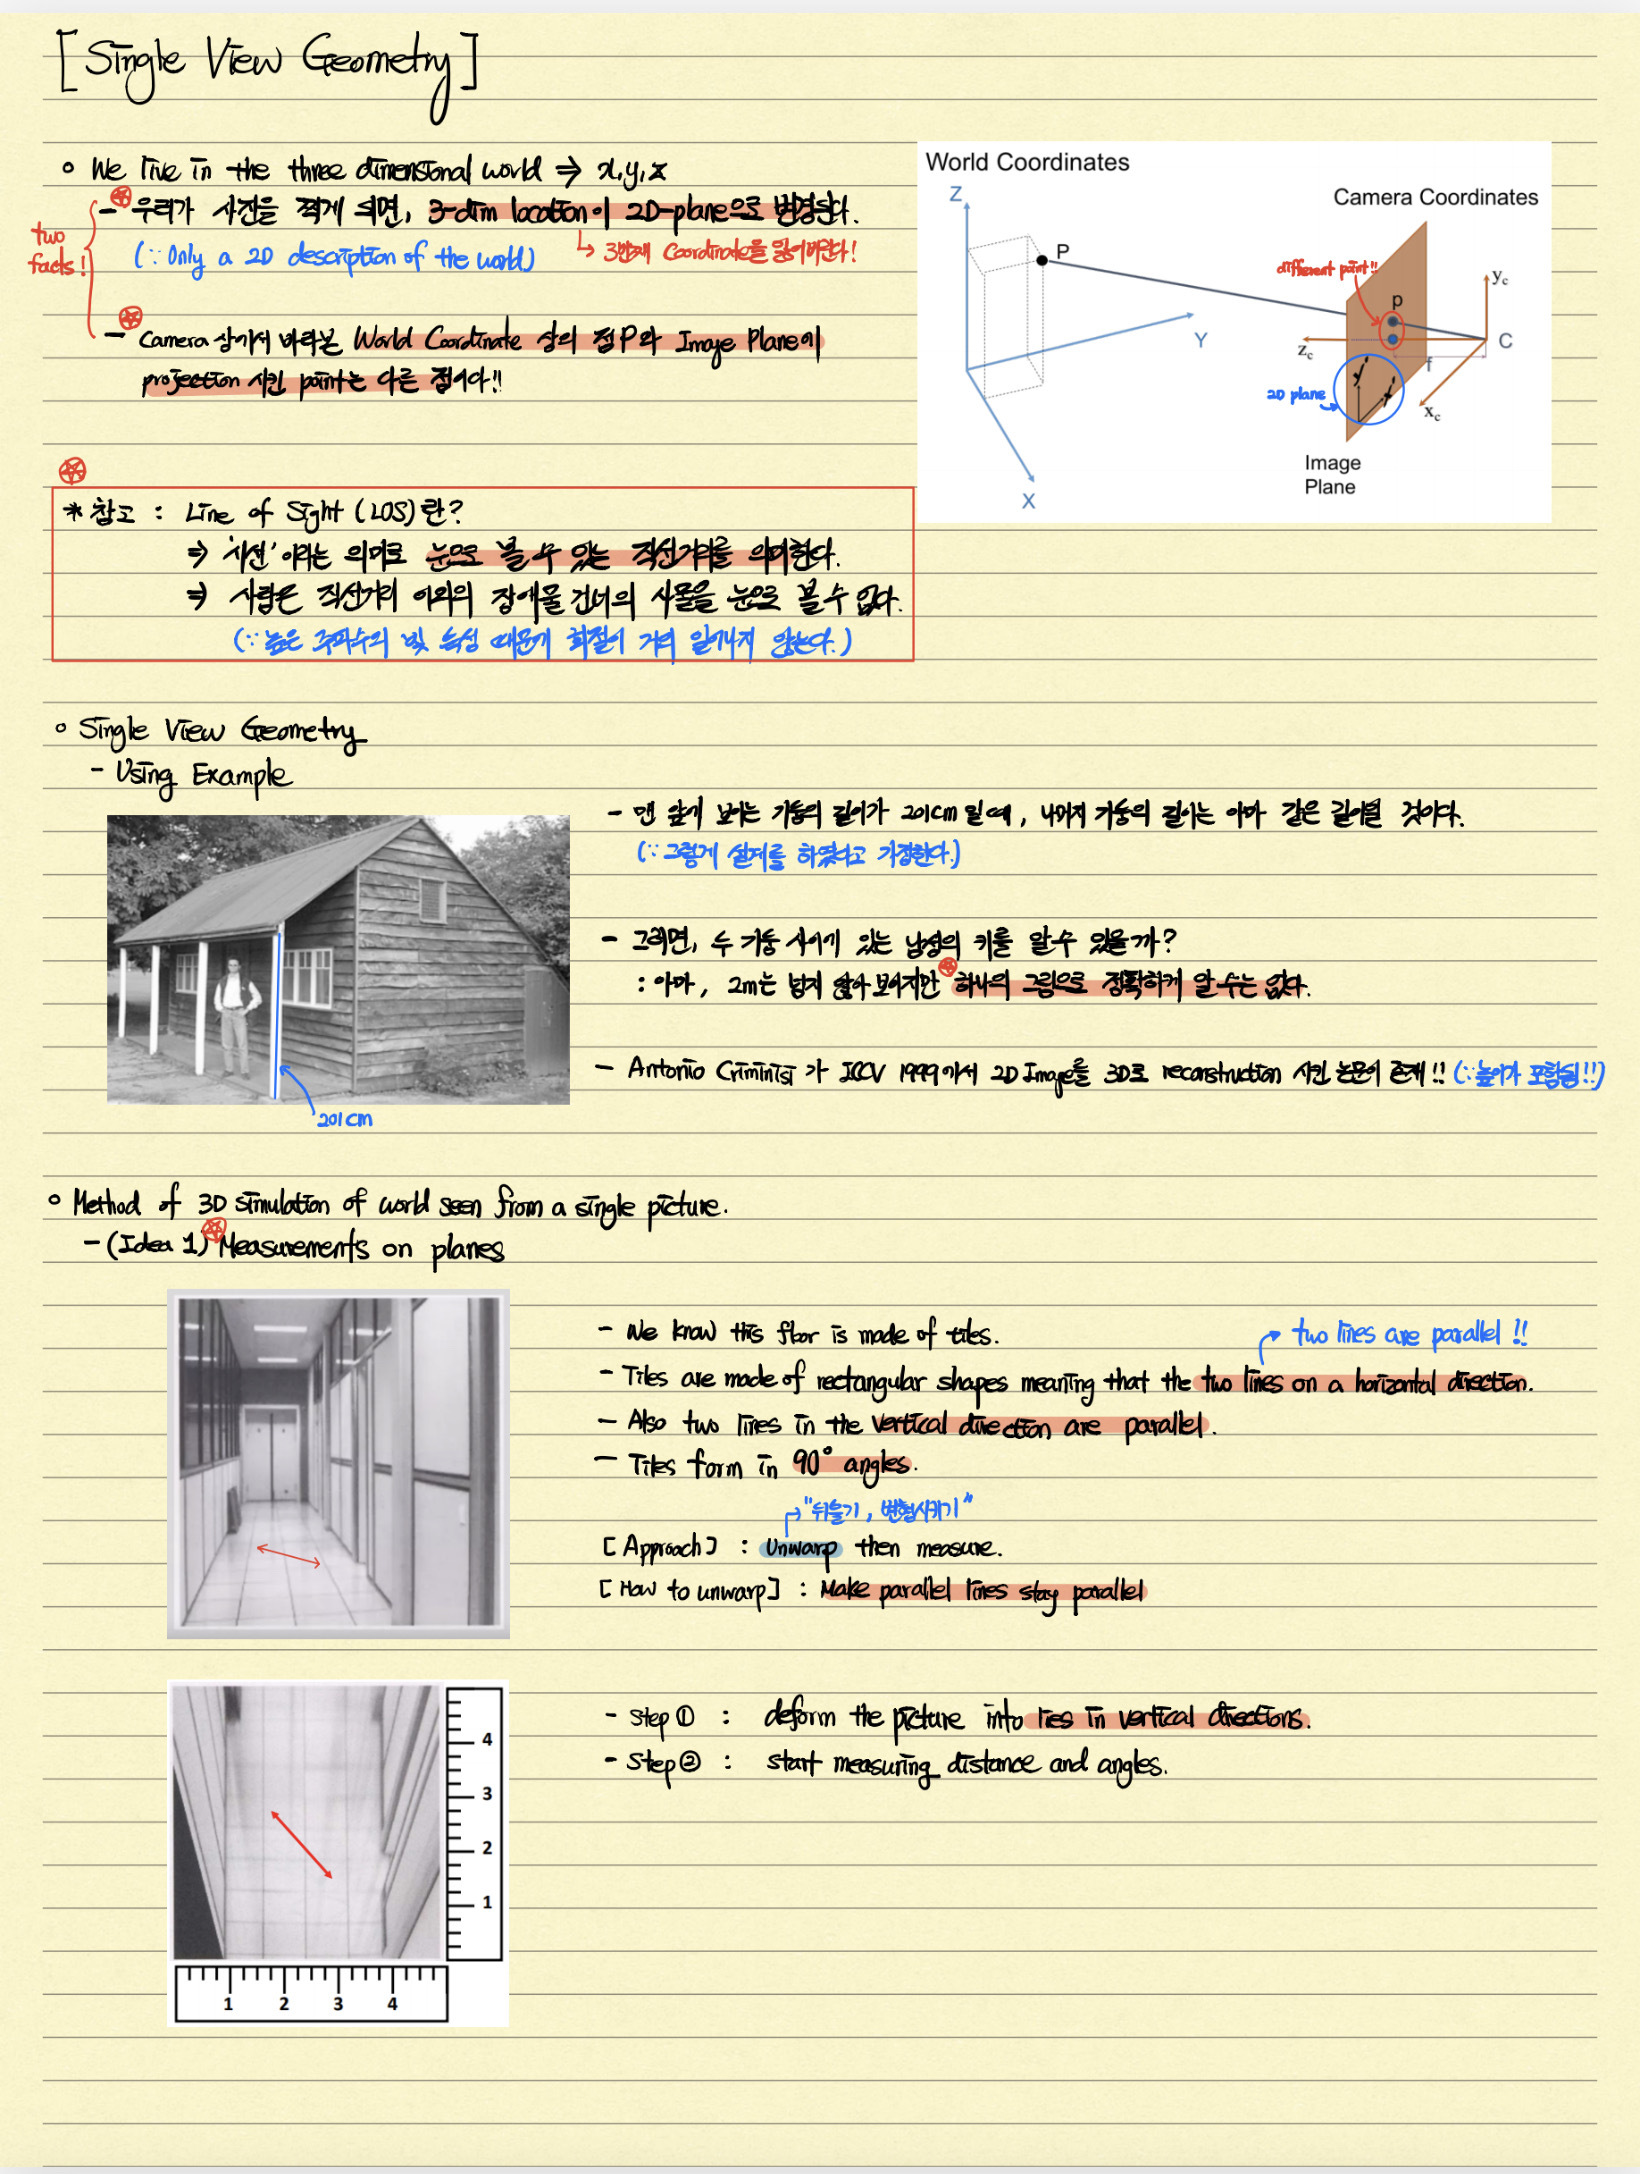 [Single View Geometry]
o We live in the three dimensional world ⇒ x,y,z
two facts!
- 우리가 사진을 찍게 되면, 3-dim location이 2D-plane으로 변경된다.
(∵ Only a 2D description of the world)
↳ 3번째 Coordinate을 잃어버린다!
- Camera 상에서 바라본 World Coordinate 상의 점P와 Image Plane이
projection 시킨 point는 다른 점이다!!
World Coordinates
Camera Coordinates
Z
P
Y
X
different point!!
p
y_c
z_c
C
f
x_c
2D plane
y
x
Image
Plane
* 참고 : Line of Sight (LOS)란?
⇒ '시선' 이라는 의미로 눈으로 볼 수 있는 직선거리를 의미한다.
⇒ 사람은 직선거리 이외의 장애물 건너의 사물을 눈으로 볼 수 없다.
(∵ 높은 주파수의 빛 특성 때문에 회절이 거의 일어나지 않는다.)
o Single View Geometry
- Using Example
- 맨 앞에 보이는 기둥의 길이가 201cm 일 때, 나머지 기둥의 길이는 아마 같은 길이일 것이다.
(∵ 그렇게 설계를 하였다고 가정한다.)
- 그러면, 두 기둥 사이에 있는 남성의 키를 알 수 있을까?
: 아마, 2m는 넘지 않아 보이지만 하나의 그림으로 정확하게 알 수는 없다.
- Antonio Criminisi 가 ICCV 1999에서 2D Image를 3D로 reconstruction 시킨 논문이 존재!! (∵ 높이가 포함됨!!)
201cm
o Method of 3D simulation of world seen from a single picture.
- (Idea 1) Measurements on planes
- We know this floor is made of tiles.
two lines are parallel !!
- Tiles are made of rectangular shapes meaning that the two lines on a horizontal direction.
- Also two lines in the vertical direction are parallel.
- Tiles form in 90° angles.
"뒤틀기, 변형시키기"
[Approach] : Unwarp then measure.
[How to unwarp] : Make parallel lines stay parallel
- Step ① : deform the picture into lies in vertical directions.
- Step ② : start measuring distance and angles.
4
3
2
1
1 2 3 4